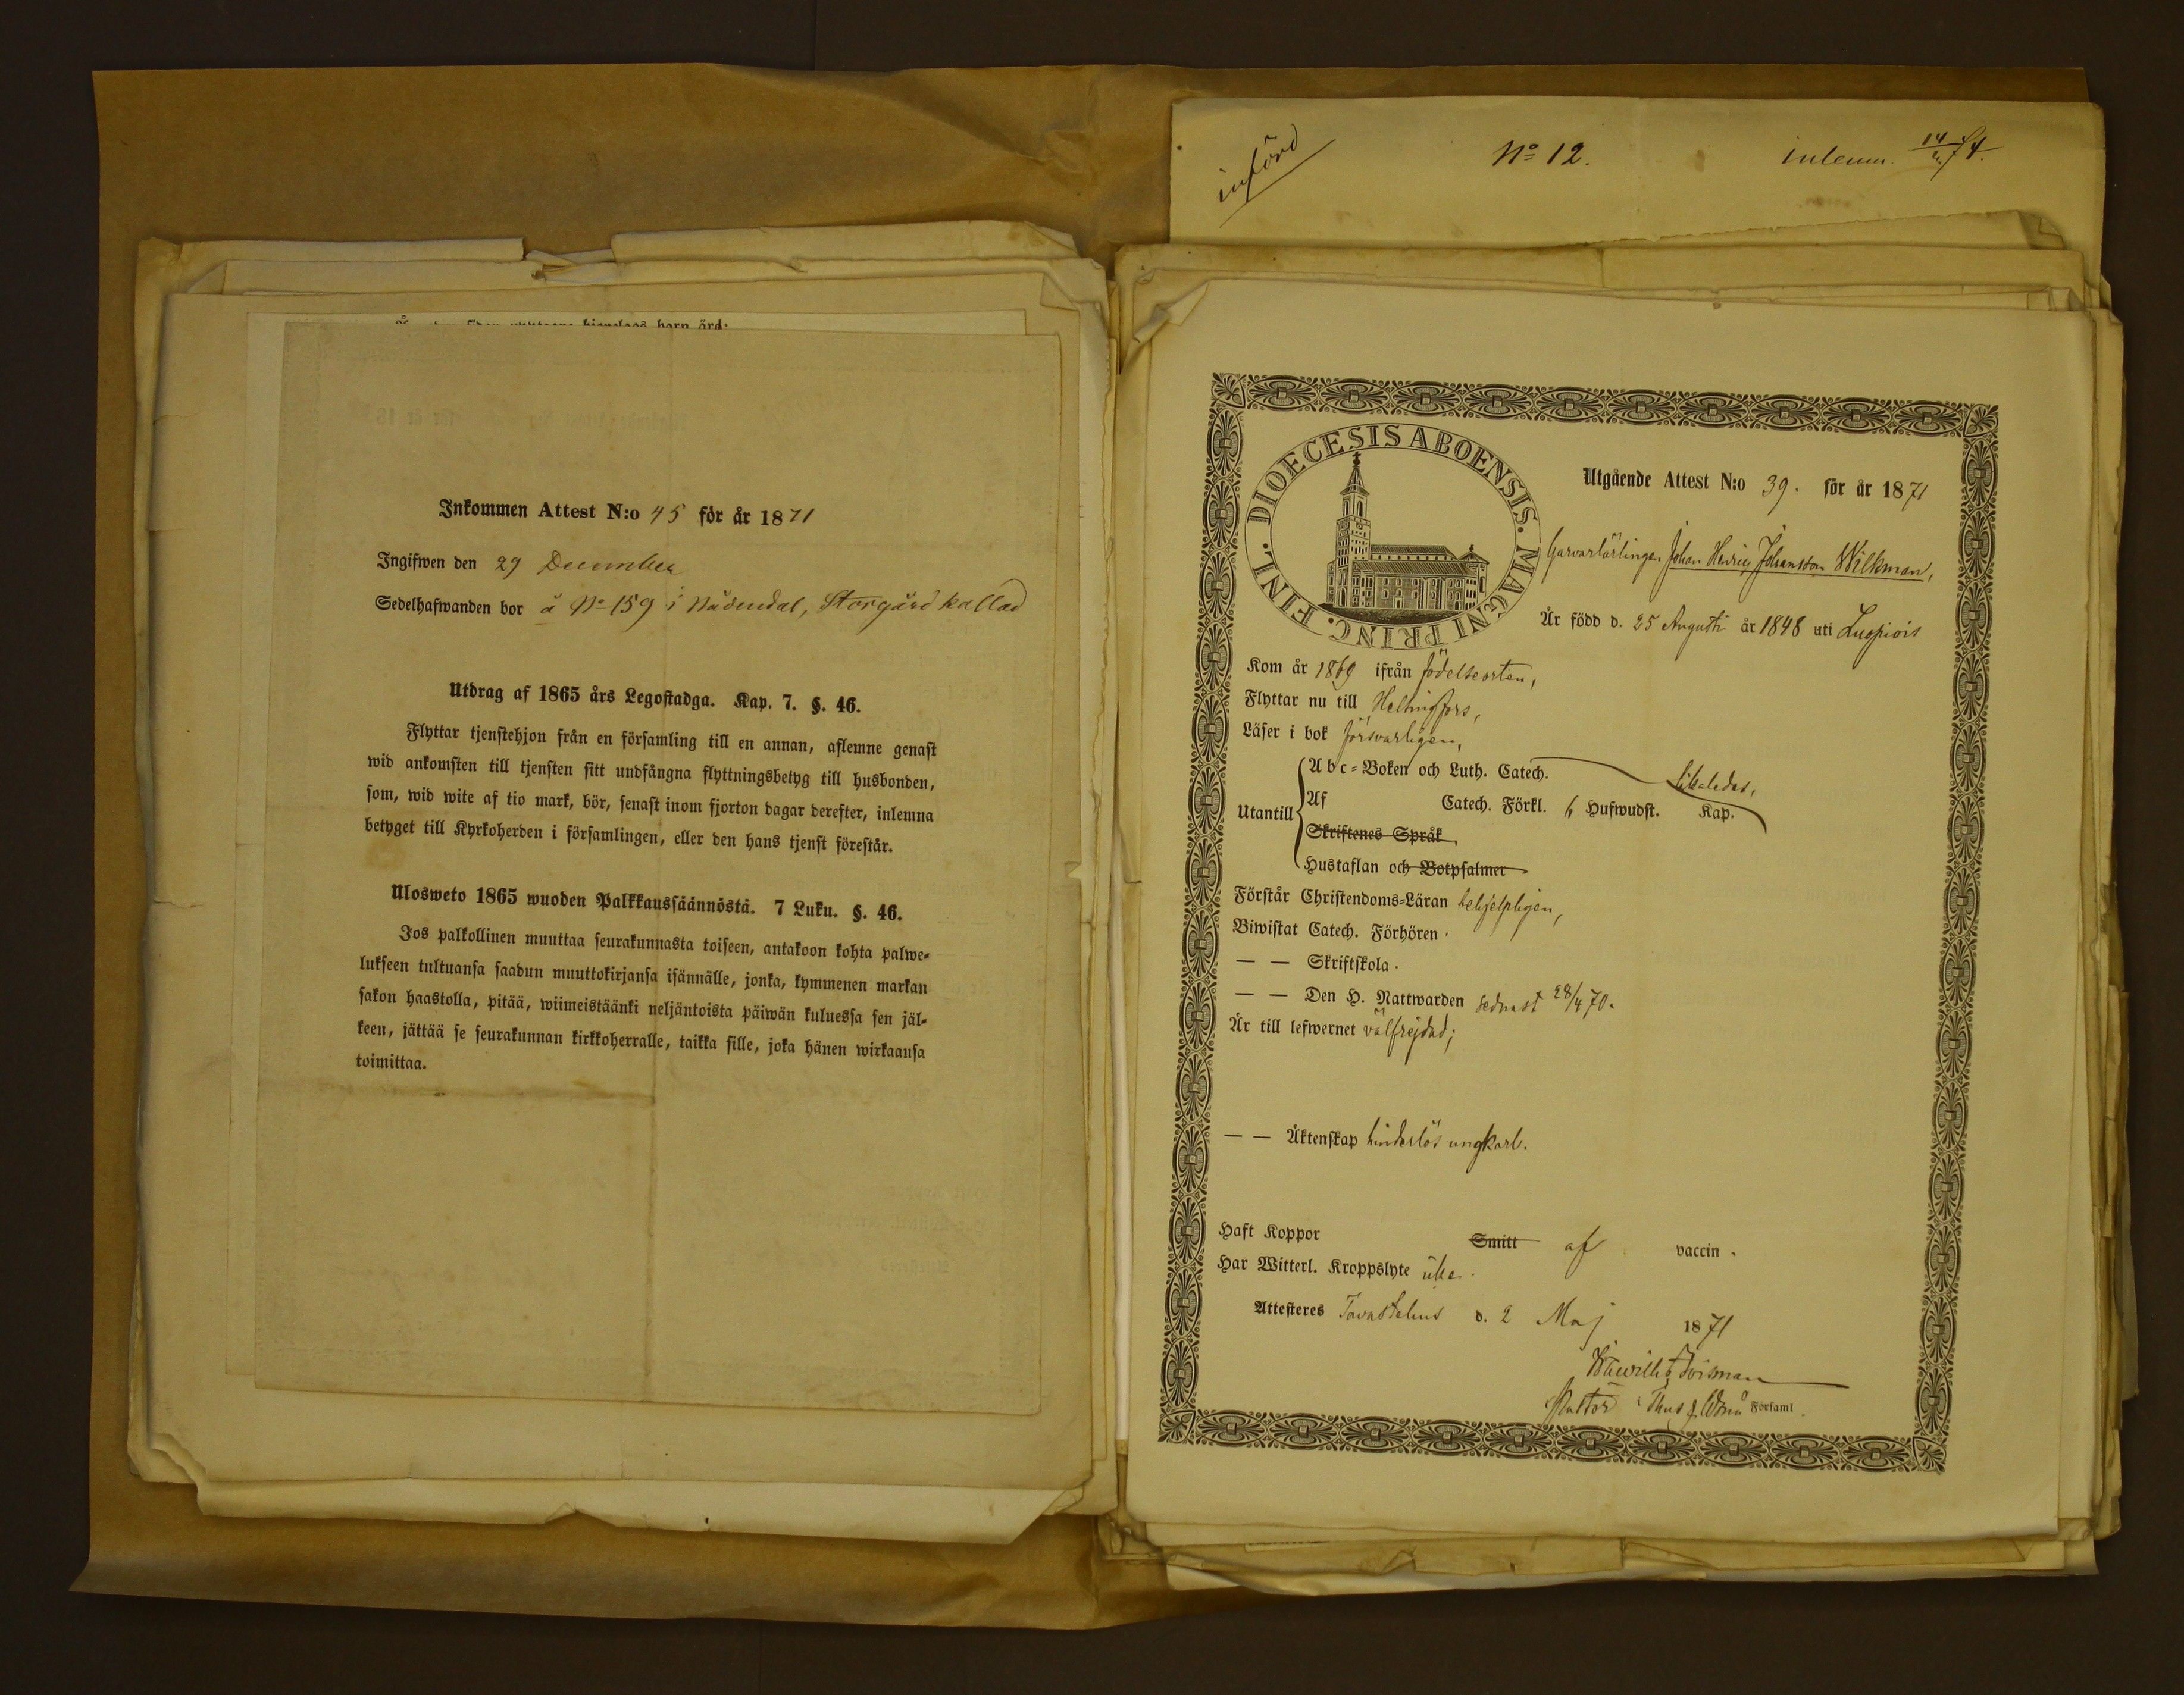 Inkommen Attest N:o 45 för år 1871
Ingifwen den 29 December
Sedelhafwanden bor å No 159 i Nådendal, Storgård kallad
Utdrag af 1865 års Legostadga. Kap. 7. §. 46.
Flyttar tjenstehjon från en församling till en annan, aflemne genast
wid ankomsten till tjensten sitt undfångna flyttningsbetyg till husbonden,
som, wid wite af tio mark, bör, senast inom fjorton dagar derefter, inlemna
betyget till Kyrkoherden i församlingen, eller den hans tjenst förestår.
Ulosweto 1865 wuoden Palkkaussäännöstä. 7 Luku. §. 46.
Jos palkollinen muuttaa seurakunnasta toiseen, antakoon kohta palwe-
lukseen tultuansa saadun muuttokirjansa isännälle, jonka, kymmenen markan
sakon haastolla, pitää, wiimeistäänki neljäntoista päiwän kuluessa sen jäl-
keen, jättää se seurakunnan kirkkoherralle, taikka sille, joka hänen wirkaansa
toimittaa.
införd
No 12.
inlemn. 74.
DIOECESIS ABOENSIS. MAGNI PRINC. FINL.
Utgående Attest N:o 39. för år 1871
Garvarlärlingen Johan Henric Johansson Wilkman,
Är född d. 25 Augusti år 1848 uti Luopiois
Kom år 1869 ifrån födelseorten,
Flyttar nu till Helsingfors,
Läser i bok försvarligen,
Utantill
Abc-Boken och Luth. Catech.
likaledes,
Af Catech. Förkl. 6 Hufwudst. Kap.
Skriftenes Språk
Hustaflan och Botpsalmer
Förstår Christendoms-Läran behjelpligen,
Biwistat Catech. Förhören.
— — Skriftskola.
— — Den H. Nattwarden sednast 28/4 70.
Är till lefwernet välfrejdad;
— — Äktenskap hinderlös ungkarl.
Haft Koppor Smitt af vaccin.
Har Witterl. Kroppslyte icke.
Attesteres Tavastehus d. 2 Maj 1871
Pastor i Församl.